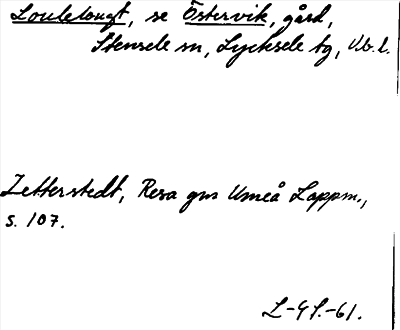 Louletougt, se Östervik, gård,
Stensele sn, Lycksele tg, Vb. l.
Zetterstedt, Resa gm Umeå Lappm.,
s. 107.
L-91.-61.